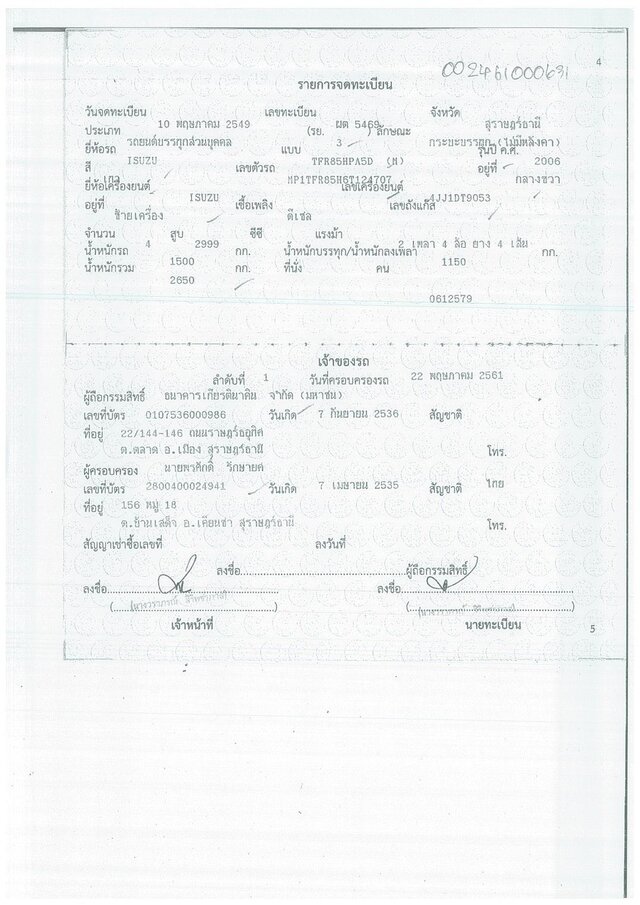 002461000631
4
รายการจดทะเบียน
วันจดทะเบียน 10 พฤษภาคม 2549 เลขทะเบียน ผต 5469 จังหวัด สุราษฎร์ธานี
ประเภท รถยนต์บรรทุกส่วนบุคคล (รย. 3 ) ลักษณะ กระบะบรรทุก (ไม่มีหลังคา)
ยี่ห้อรถ ISUZU แบบ TFR85HPA5D (M) รุ่นปี ค.ศ. 2006
สี เทา เลขตัวรถ MP1TFR85H6T124707 อยู่ที่ กลางขวา
ยี่ห้อเครื่องยนต์ ISUZU เลขเครื่องยนต์ 4JJ1DT9053
อยู่ที่ ซ้ายเครื่อง เชื้อเพลิง ดีเซล เลขถังแก๊ส
จำนวน 4 สูบ 2999 ซีซี แรงม้า 2 เพลา 4 ล้อ ยาง 4 เส้น
น้ำหนักรถ 1500 กก. น้ำหนักบรรทุก/น้ำหนักลงเพลา 1150 กก.
น้ำหนักรวม 2650 กก. ที่นั่ง คน
0612579
เจ้าของรถ
ลำดับที่ 1 วันที่ครอบครองรถ 22 พฤษภาคม 2561
ผู้ถือกรรมสิทธิ์ ธนาคารเกียรตินาคิน จำกัด (มหาชน)
เลขที่บัตร 0107536000986 วันเกิด 7 กันยายน 2536 สัญชาติ
ที่อยู่ 22/144-146 ถนนราษฎร์อุทิศ
ต.ตลาด อ.เมือง สุราษฎร์ธานี โทร.
ผู้ครอบครอง นายพรศักดิ์ รักษายศ
เลขที่บัตร 2800400024941 วันเกิด 7 เมษายน 2535 สัญชาติ ไทย
ที่อยู่ 156 หมู่ 18
ต.บ้านเสด็จ อ.เคียนซา สุราษฎร์ธานี โทร.
สัญญาเช่าซื้อเลขที่ ลงวันที่
ลงชื่อ ผู้ถือกรรมสิทธิ์
ลงชื่อ ลงชื่อ
เจ้าหน้าที่ นายทะเบียน
5